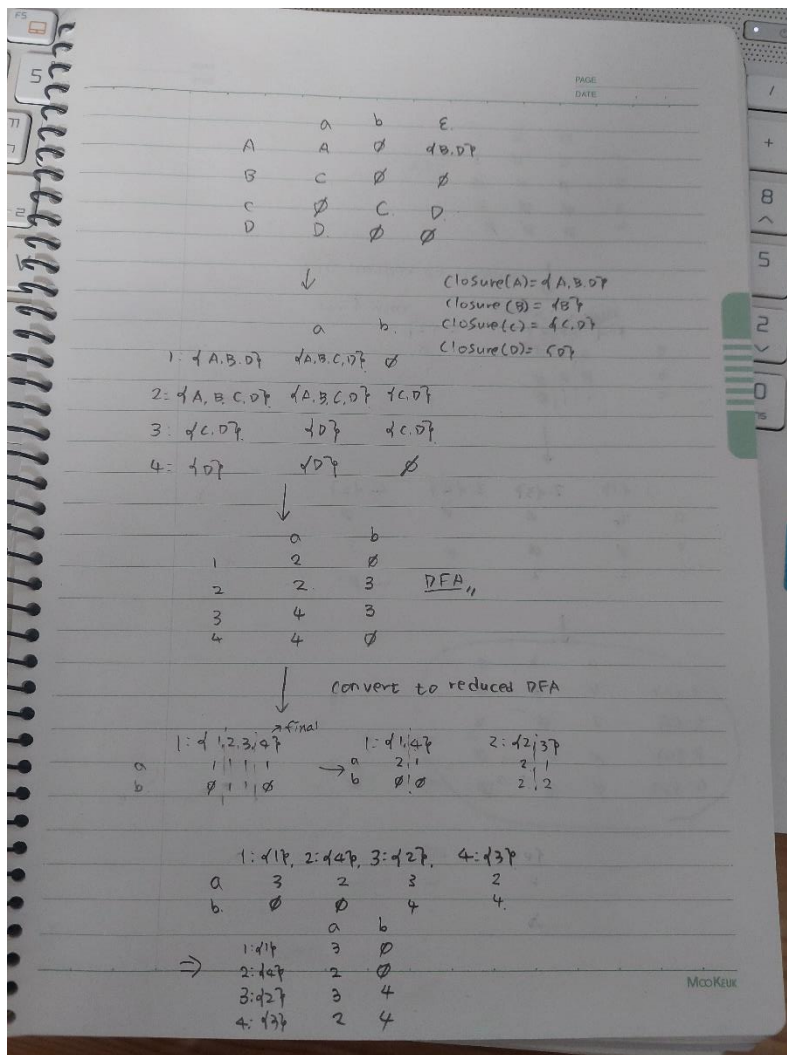 PAGE
DATE
a b ε
A A ∅ {B.D}
B C ∅ ∅
C ∅ C. D.
D D. ∅ ∅
↓
closure(A)={A,B.D}
closure(B)= {B}
closure(c)= {C.D}
closure(D)= {D}
a b.
1: {A.B.D} {A.B.C,D} ∅
2: {A, B, C, D} {A.B.C,D} {C,D}
3: {C.D} {D} {C.D}
4: {D} {D} ∅
↓
a b
1 2 ∅
2 2. 3 DFA,,
3 4 3
4 4 ∅
↓ convert to reduced DFA
→final
1: {1,2,3,4} 1: {1,4} 2: {2,3}
a 1 1 1 1 → a 2 1 2 1
b ∅ 1 1 ∅ b ∅ ∅ 2 2
1: {1}, 2: {4}, 3: {2}, 4: {3}
a 3 2 3 2
b. ∅ ∅ 4 4.
a b
1:{1} 3 ∅
⇒ 2:{4} 2 ∅
3:{2} 3 4
4: {3} 2 4
MooKeuk
F5
5
2
/
+
8
5
2
0